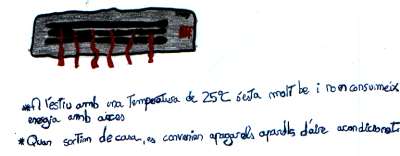 *A l'estiu amb una Temperatura de 25ºC s'esta molt be i no en consumeix
energia amb
*Quan sortim de casa, es convenien apagar els aparells d'aire acondicionats